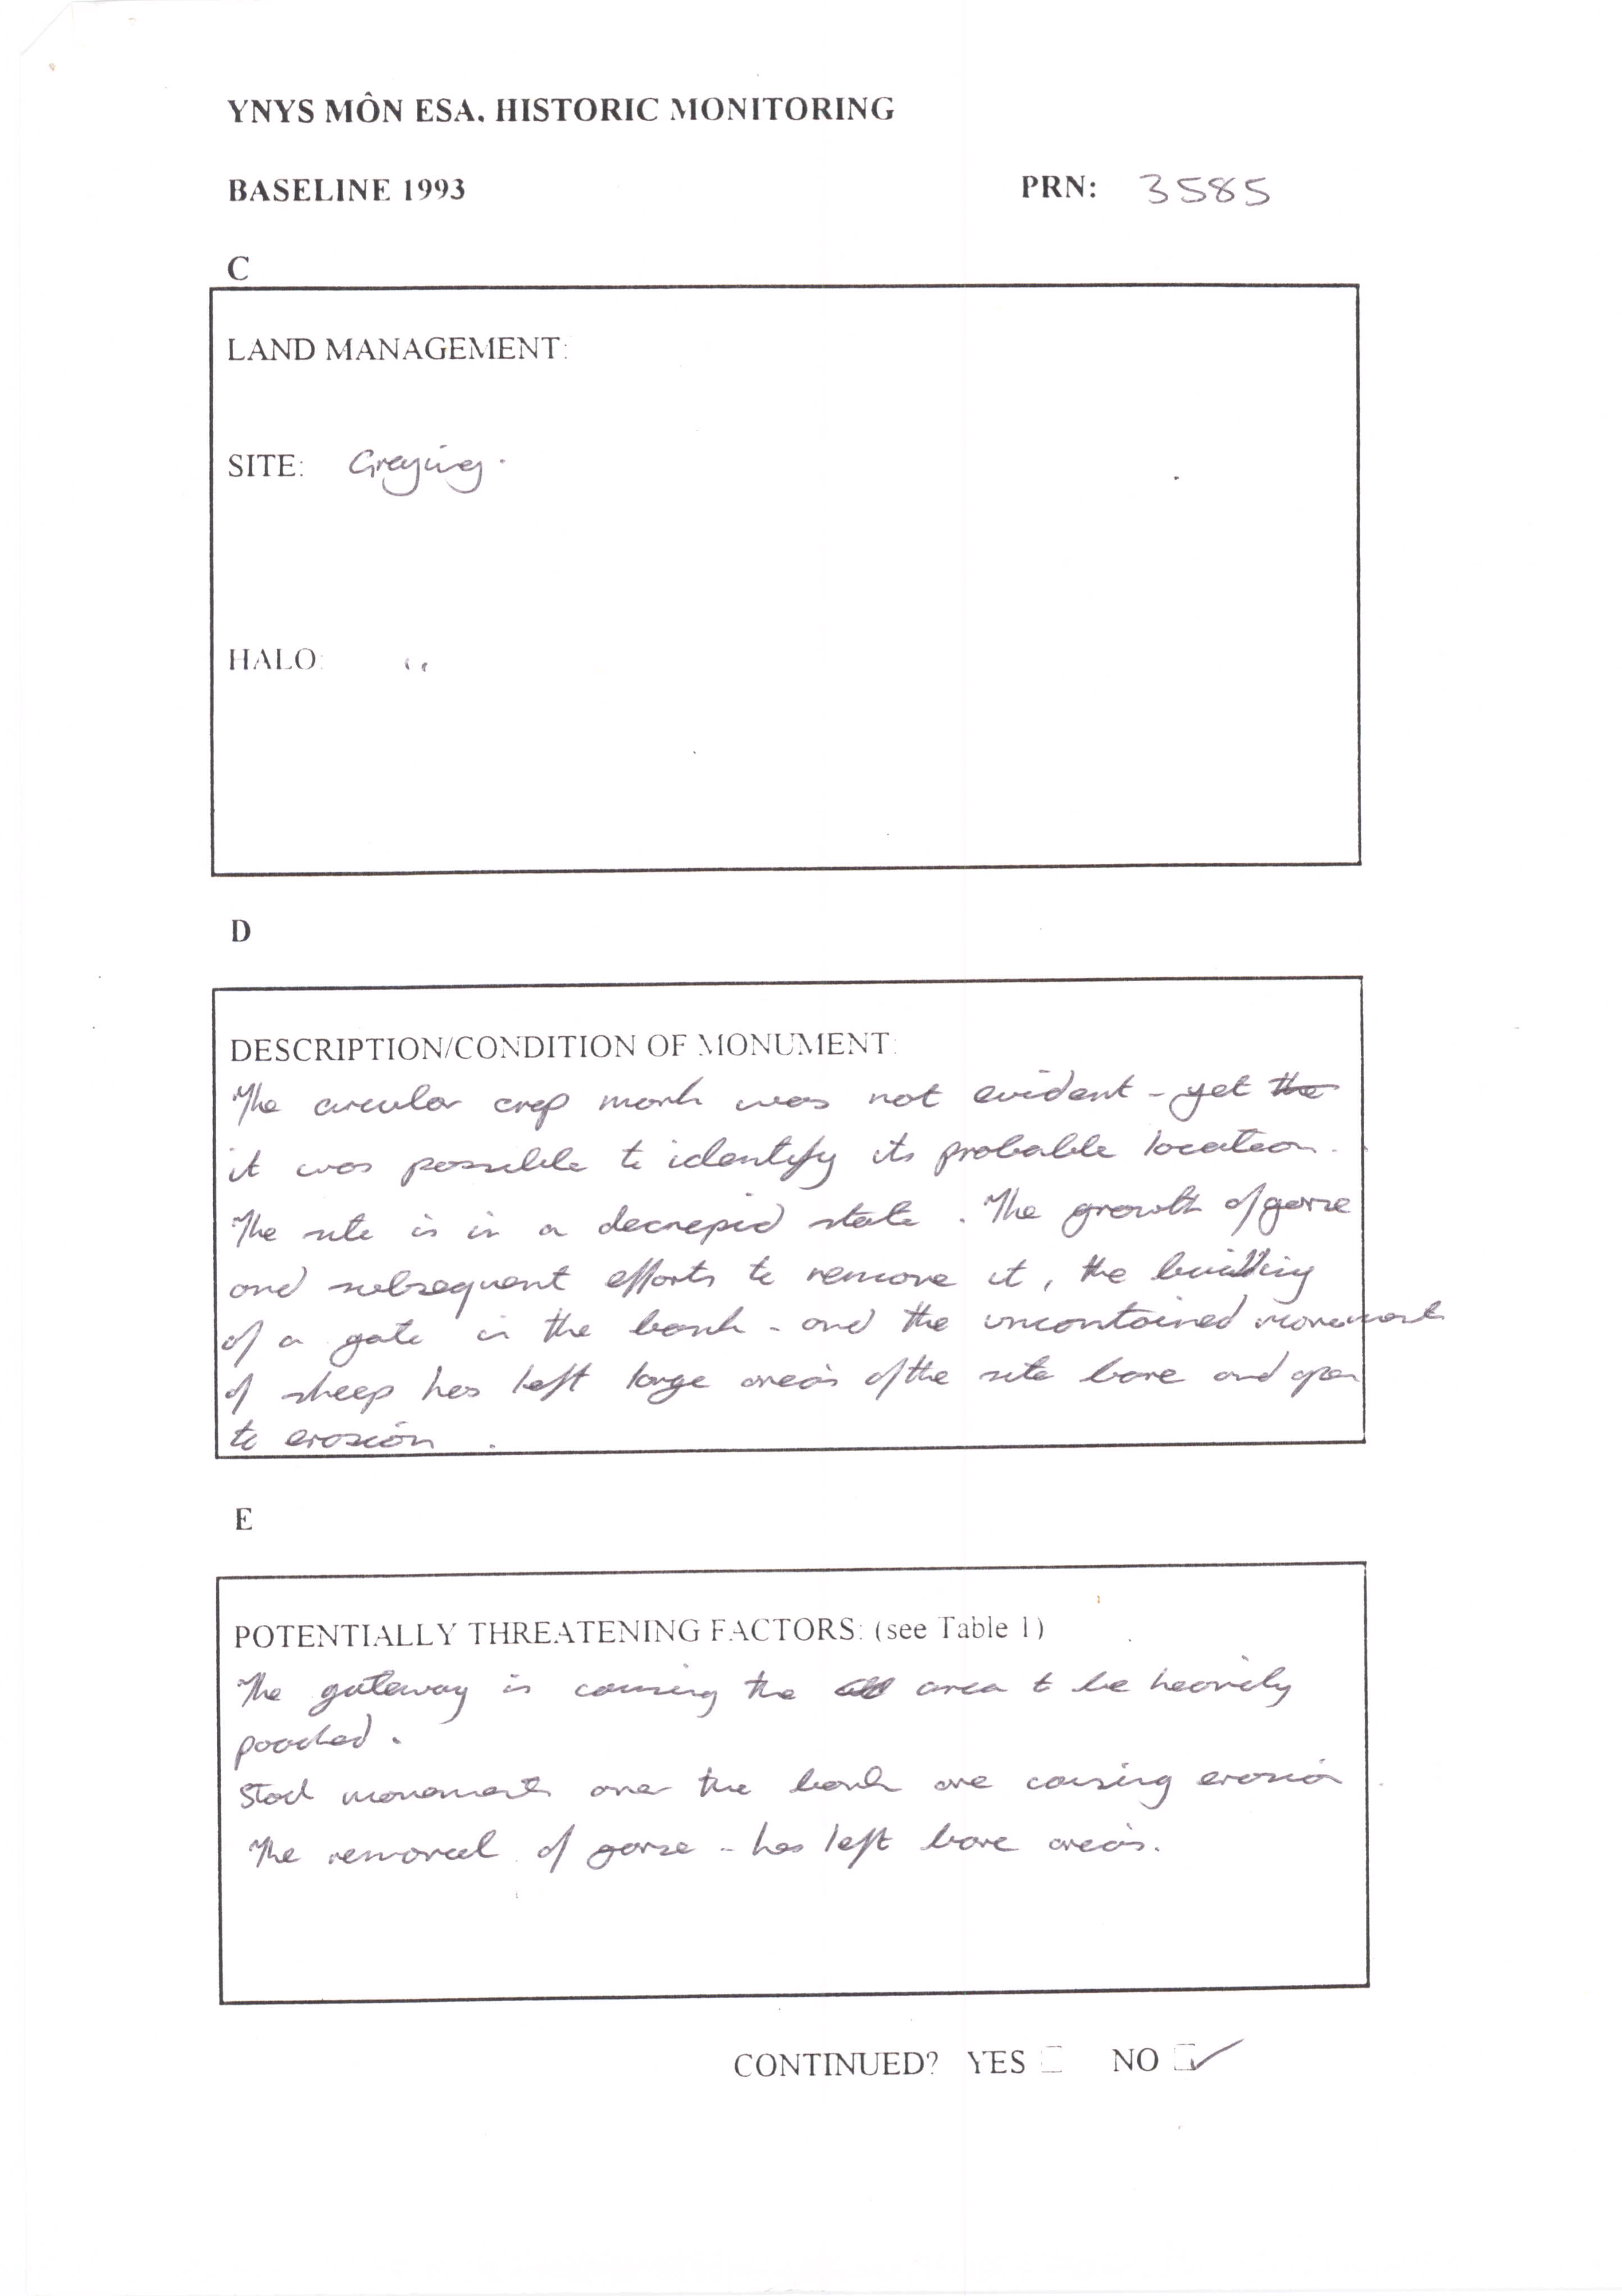 YNYS MÔN ESA. HISTORIC MONITORING
BASELINE 1993 PRN: 3585
C
LAND MANAGEMENT:
SITE: Grazing.
HALO: "
D
DESCRIPTION/CONDITION OF MONUMENT:
The circular crop mark was not evident - yet the
it was possible to identify its probable location.
The site is in a decrepid state. The growth of gorse
and subsequent efforts to remove it, the building
of a gate in the bank - and the uncontained movement
of sheep has left large areas of the site bare and open
to erosion.
E
POTENTIALLY THREATENING FACTORS: (see Table 1)
The gateway is causing the area to be heavily
poached.
Stock movements over the bank are causing erosion
The removal of gorse - has left bare areas.
CONTINUED? YES NO ✓